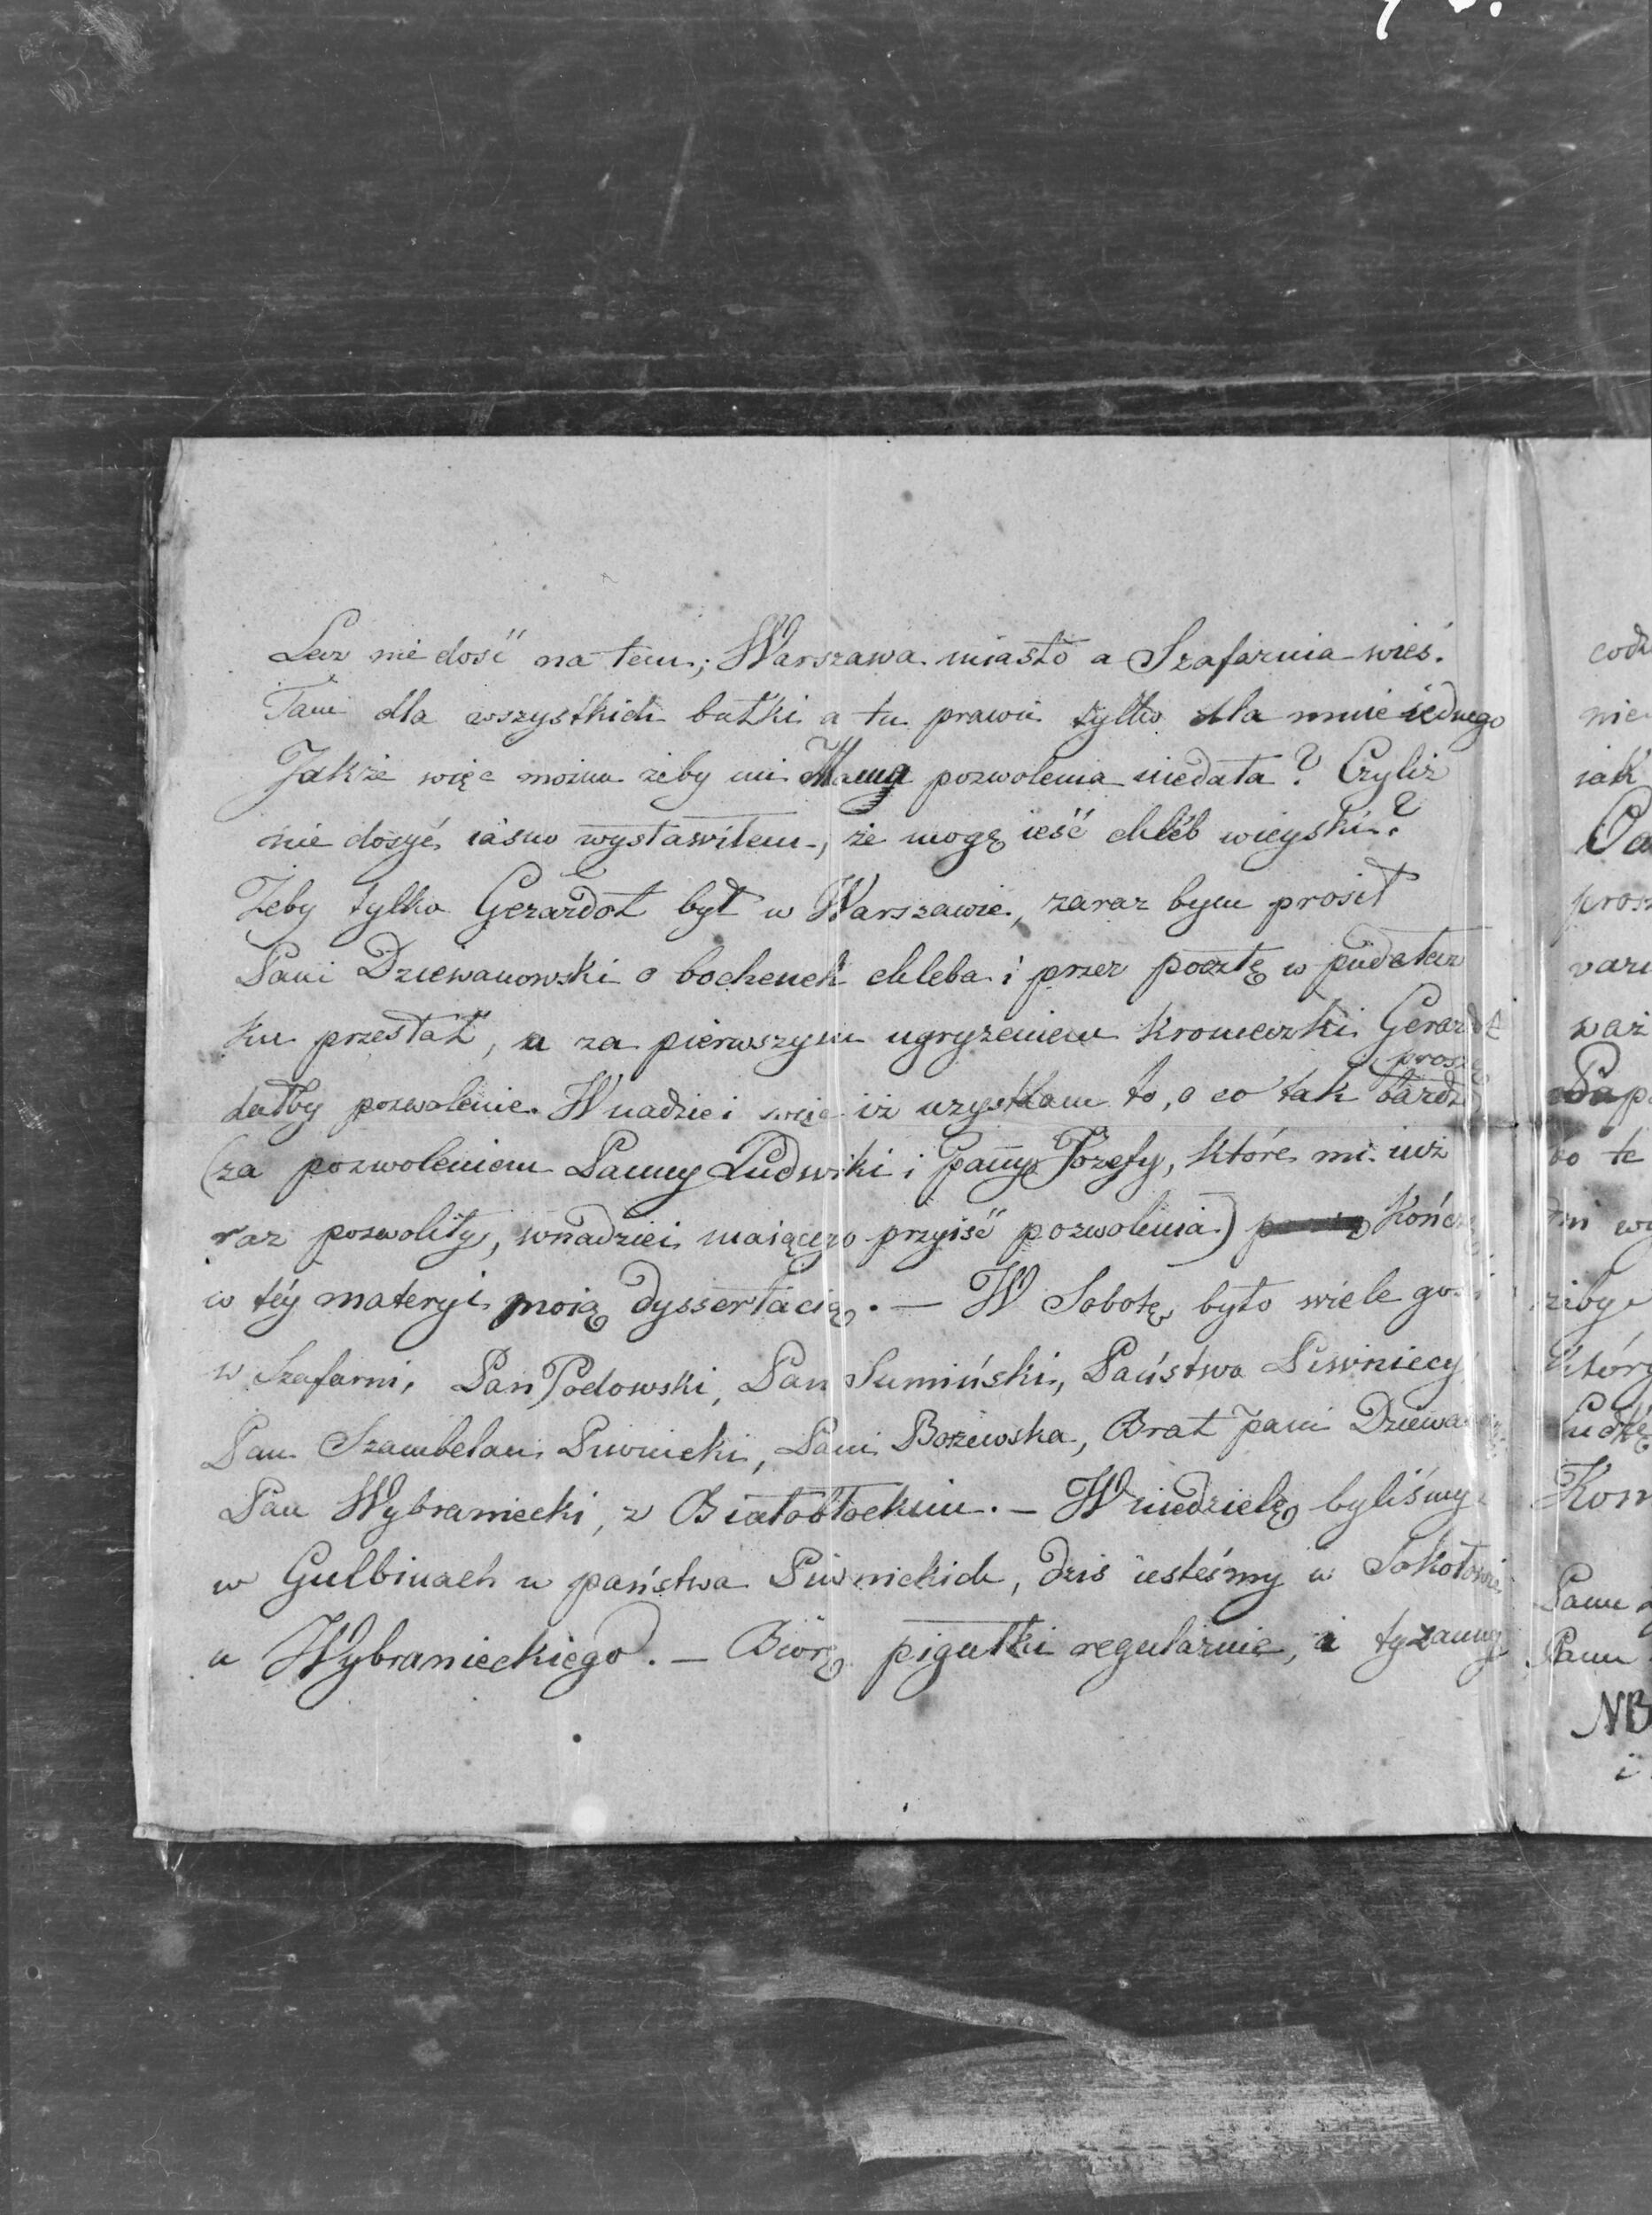 Lecz nie dosić na tem; Warszawa miasto a Szafarnia wieś.
Tam dla wszystkich bułki a tu prawie tylko dla mnie iednego
Jakże więc można żeby mi Mama pozwolenia niedała? Czyliż
nie dosyć iasno wystawiłem, że mogę ieść chléb wieyski?
Żeby tylko Gerardot był w Warszawie, zaraz bym prosił
Pani Dziewanowski o bochenek chleba i przez pocztę w pudełecz
ku przesłał, a za pierwszym ugryzieniem kromeczki Gerardot
dałby pozwolenie. W nadziei więc iż uzyskam to, o co tak bardzo
proszę
(za pozwoleniem Panny Ludwiki i panny Józefy, które mi iuż
raz pozwoliły, wnadziei maiącego przyiść pozwolenia) kończę
w téy materyi moię dyssertacię. — W Sobotę było wiele gości
w Szafarni, Pan Podowski, Pan Sumiński, Państwo Piwniccy
Pan Szambelan Piwnicki, Pani Bożewska, Brat pani Dziewa
Pan Wybraniecki, z Białobłockim. — W niedzielę byliśmy
w Gulbinach u państwa Piwnickich, dziś iesteśmy w Sokołowie
u Wybranieckiego. — Biorę pigułki regularnie, i tyzanny
nie
iak
Pa
prosz
waż
Pap
bo te
żeby
któr
Ludk
Kon
Panu
Panu
NB
i